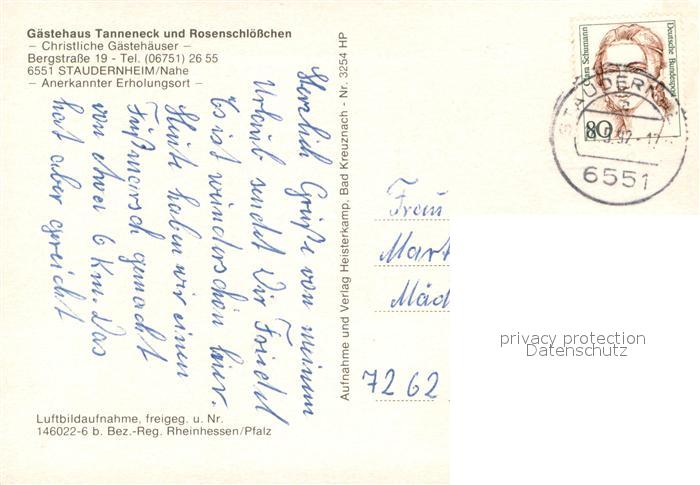 Gästehaus Tanneneck und Rosenschlößchen
– Christliche Gästehäuser –
Bergstraße 19 - Tel. (06751) 26 55
6551 STAUDERNHEIM/Nahe
– Anerkannter Erholungsort –
Herzlich Grüße von meinem
Urlaub sendet Dir Friedel
Es ist wunderschön hier.
Heute haben wir einen
Fußmarsch gemacht
von etwa 6 Km. Das
hat aber gereicht
Luftbildaufnahme, freigeg. u. Nr.
146022-6 b. Bez.-Reg. Rheinhessen/Pfalz
Aufnahme und Verlag Heisterkamp, Bad Kreuznach - Nr. 3254 HP
Clara Schumann
Deutsche Bundespost
80
STAUDERN
5.92-17
6551
Frau
Mart
Mäd
7262
privacy protection
Datenschutz